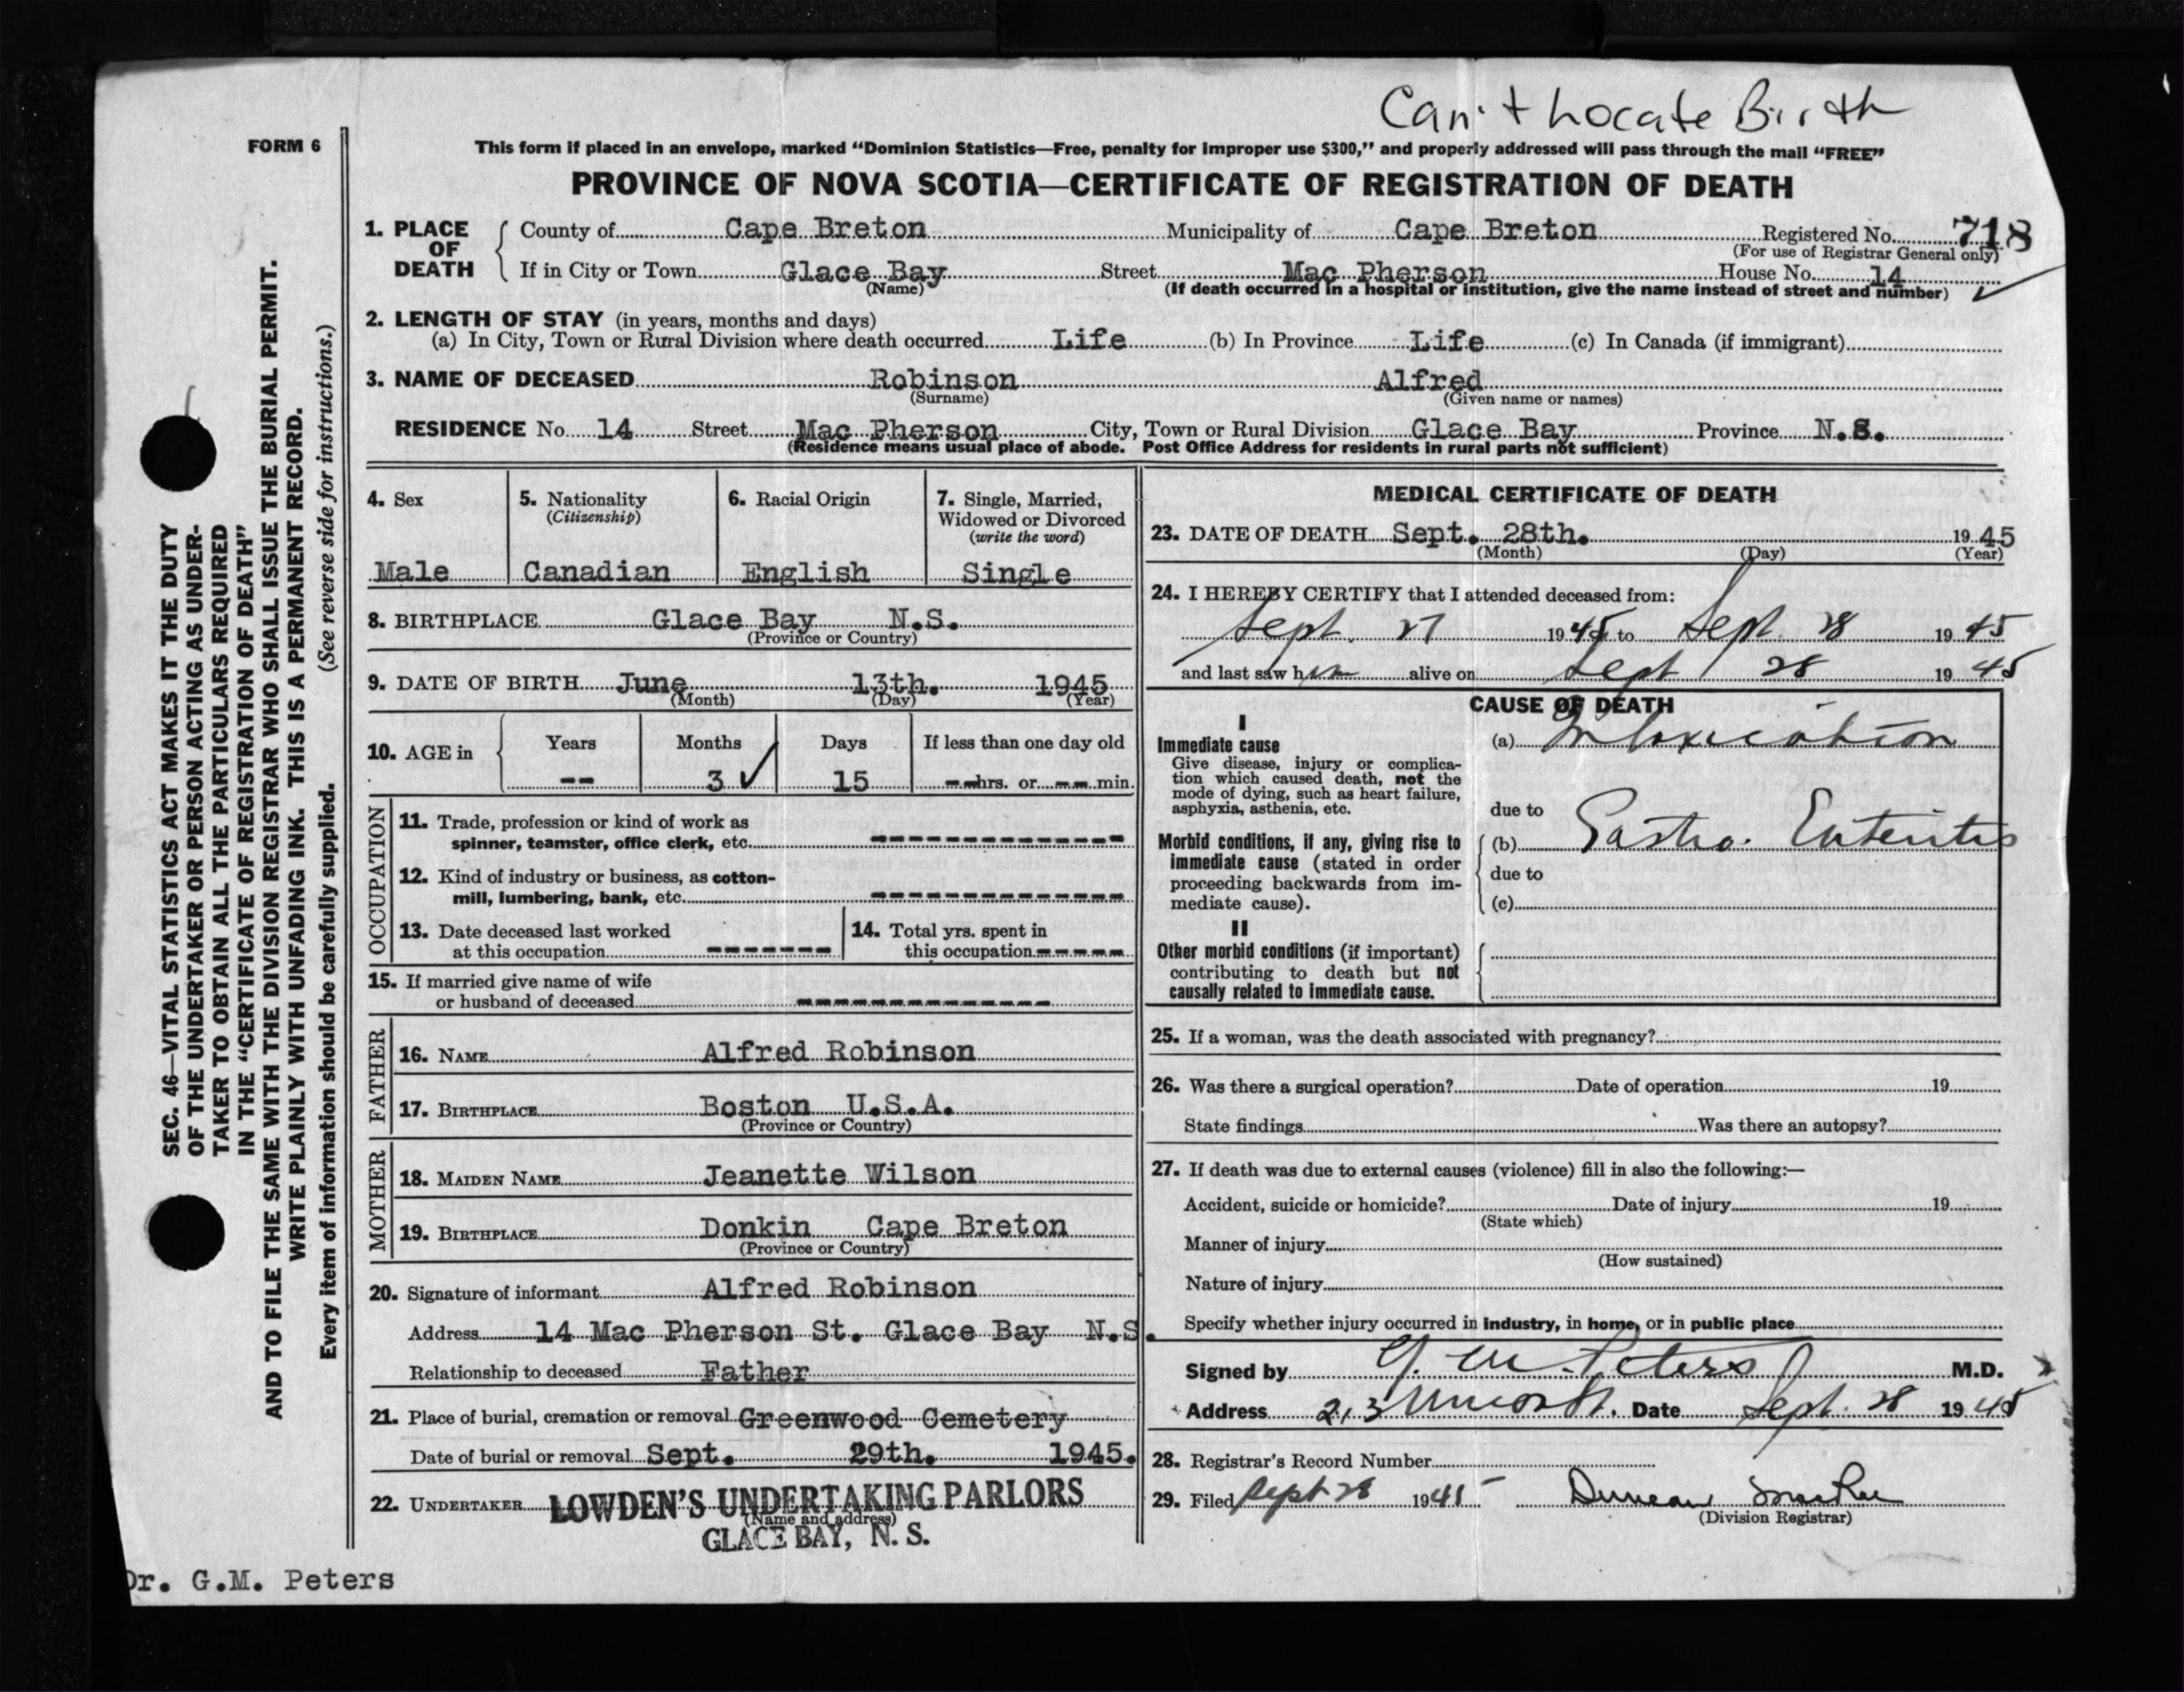 Can't Locate Birth
FORM 6
This form if placed in an envelope, marked “Dominion Statistics—Free, penalty for improper use $300,” and properly addressed will pass through the mail “FREE”
PROVINCE OF NOVA SCOTIA—CERTIFICATE OF REGISTRATION OF DEATH
1. PLACE OF DEATH
County of Cape Breton Municipality of Cape Breton Registered No. 718
(For use of Registrar General only)
If in City or Town Glace Bay Street Mac Pherson House No. 14
(Name) (If death occurred in a hospital or institution, give the name instead of street and number)
2. LENGTH OF STAY (in years, months and days)
(a) In City, Town or Rural Division where death occurred Life (b) In Province Life (c) In Canada (if immigrant)
3. NAME OF DECEASED Robinson Alfred
(Surname) (Given name or names)
RESIDENCE No. 14 Street Mac Pherson City, Town or Rural Division Glace Bay Province N.S.
(Residence means usual place of abode. Post Office Address for residents in rural parts not sufficient)
4. Sex
Male
5. Nationality
(Citizenship)
Canadian
6. Racial Origin
English
7. Single, Married,
Widowed or Divorced
(write the word)
Single
8. BIRTHPLACE Glace Bay N.S.
(Province or Country)
9. DATE OF BIRTH June 13th. 1945
(Month) (Day) (Year)
10. AGE in
Years Months Days If less than one day old
-- 3 15 --hrs. or --min.
OCCUPATION
11. Trade, profession or kind of work as
spinner, teamster, office clerk, etc. -------------
12. Kind of industry or business, as cotton-
mill, lumbering, bank, etc. -------------
13. Date deceased last worked
at this occupation -------
14. Total yrs. spent in
this occupation -----
15. If married give name of wife
or husband of deceased -------------
FATHER
16. NAME Alfred Robinson
17. BIRTHPLACE Boston U.S.A.
(Province or Country)
MOTHER
18. MAIDEN NAME Jeanette Wilson
19. BIRTHPLACE Donkin Cape Breton
(Province or Country)
20. Signature of informant Alfred Robinson
Address 14 Mac Pherson St. Glace Bay N.S.
Relationship to deceased Father
21. Place of burial, cremation or removal Greenwood Cemetery
Date of burial or removal Sept. 29th. 1945.
22. UNDERTAKER LOWDEN'S UNDERTAKING PARLORS
(Name and address)
GLACE BAY, N. S.
MEDICAL CERTIFICATE OF DEATH
23. DATE OF DEATH Sept. 28th. 1945
(Month) (Day) (Year)
24. I HEREBY CERTIFY that I attended deceased from:
Sept. 27 1945 to Sept. 28 1945
and last saw him alive on Sept 28 1945
CAUSE OF DEATH
I
Immediate cause
Give disease, injury or complica-
tion which caused death, not the
mode of dying, such as heart failure,
asphyxia, asthenia, etc.
(a) Intoxication
due to
Morbid conditions, if any, giving rise to
immediate cause (stated in order
proceeding backwards from im-
mediate cause).
(b) Gastro. Enteritis
due to
(c)
II
Other morbid conditions (if important)
contributing to death but not
causally related to immediate cause.
25. If a woman, was the death associated with pregnancy?
26. Was there a surgical operation? Date of operation 19
State findings Was there an autopsy?
27. If death was due to external causes (violence) fill in also the following:—
Accident, suicide or homicide? Date of injury 19
(State which)
Manner of injury
(How sustained)
Nature of injury
Specify whether injury occurred in industry, in home, or in public place
Signed by G. M. Peters M.D.
Address 213 Union St. Date Sept. 28 1945
28. Registrar's Record Number
29. Filed Sept 28 1945 Duncan
(Division Registrar)
SEC. 46—VITAL STATISTICS ACT MAKES IT THE DUTY
OF THE UNDERTAKER OR PERSON ACTING AS UNDER-
TAKER TO OBTAIN ALL THE PARTICULARS REQUIRED
IN THE “CERTIFICATE OF REGISTRATION OF DEATH”
AND TO FILE THE SAME WITH THE DIVISION REGISTRAR WHO SHALL ISSUE THE BURIAL PERMIT.
WRITE PLAINLY WITH UNFADING INK. THIS IS A PERMANENT RECORD.
Every item of information should be carefully supplied. (See reverse side for instructions.)
Dr. G.M. Peters